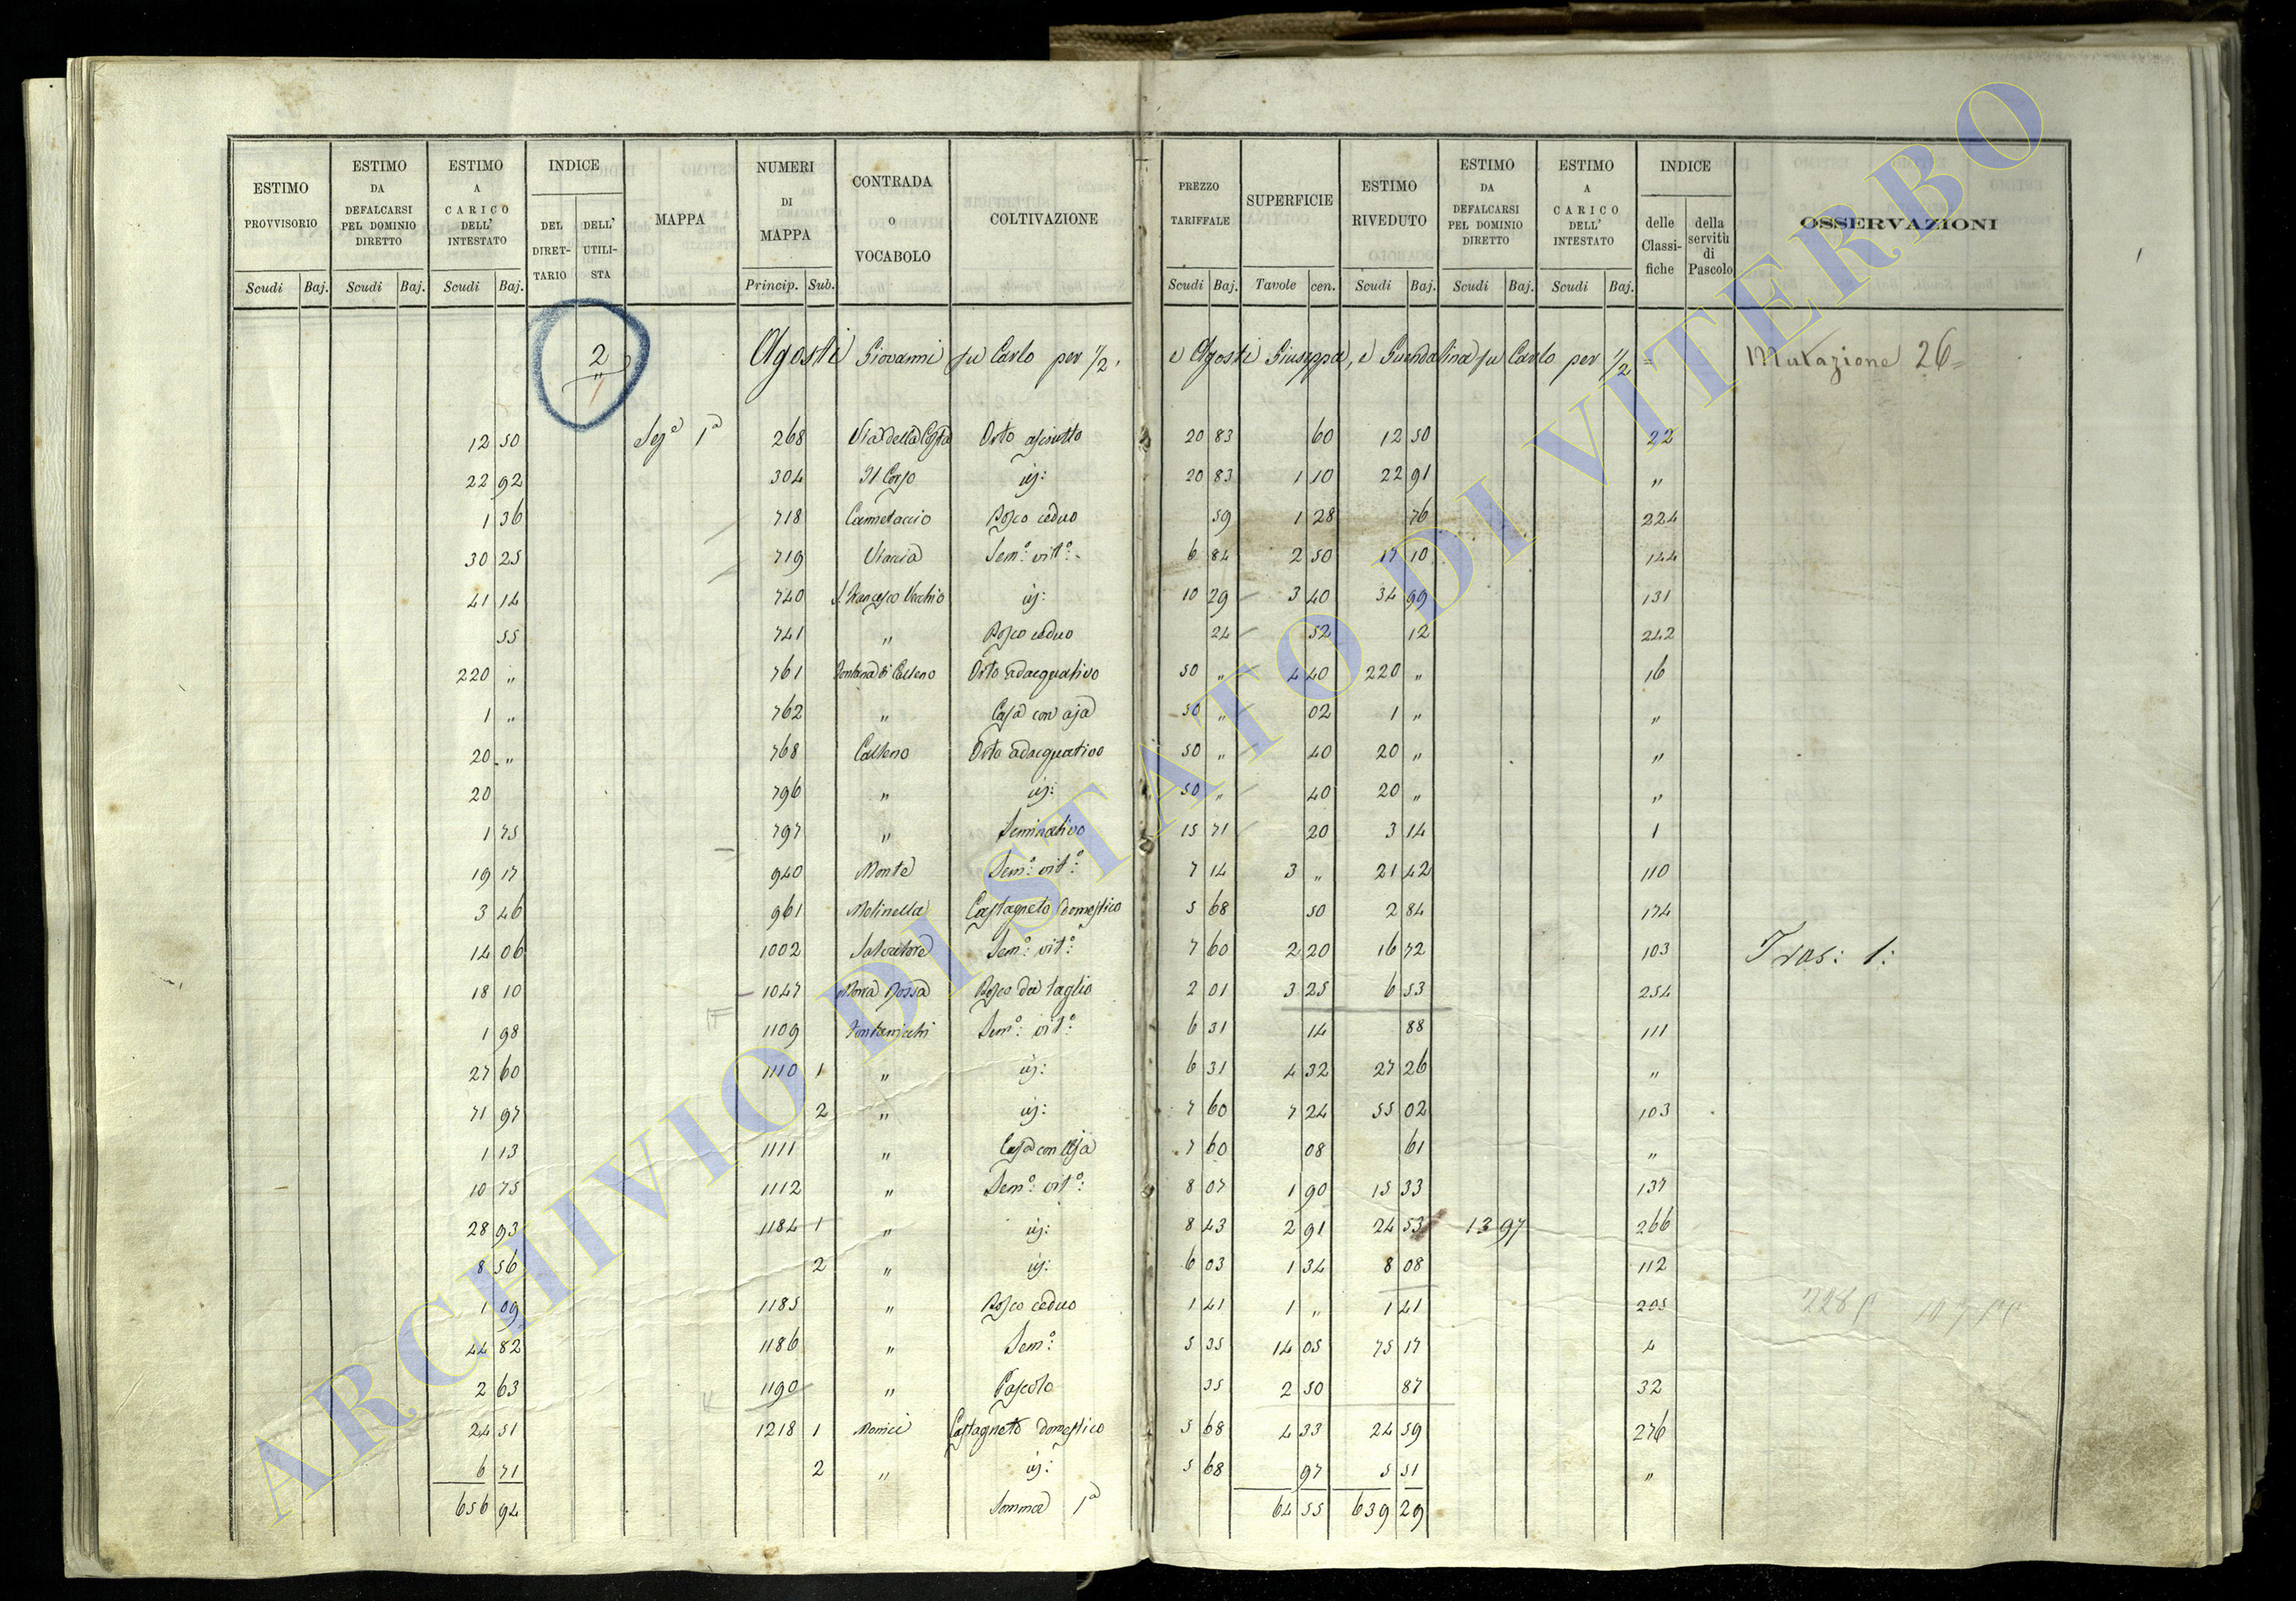 ESTIMO PROVVISORIO | ESTIMO DA DEFALCARSI PEL DOMINIO DIRETTO | ESTIMO A CARICO DELL' INTESTATO | INDICE | MAPPA | NUMERI DI MAPPA | CONTRADA O VOCABOLO | COLTIVAZIONE | PREZZO TARIFFALE | SUPERFICIE | ESTIMO RIVEDUTO | ESTIMO DA DEFALCARSI PEL DOMINIO DIRETTO | ESTIMO A CARICO DELL' INTESTATO | INDICE | OSSERVAZIONI
DEL DIRETTARIO | DELL' UTILISTA | delle Classifiche | della servitù di Pascolo
Scudi | Baj. | Scudi | Baj. | Scudi | Baj. | Princip. | Sub. | Scudi | Baj. | Tavole | cen. | Scudi | Baj. | Scudi | Baj. | Scudi | Baj.
2 Agosti Giovanni fu Carlo per 1/2, e Agosti Giuseppa, e Guendalina fu Carlo per 1/2 = Mutazione 26=
12 50 Sez.e 1a 268 Via della Orto asciutto 20 83 60 12 50 22
22 92 304 Il Corso id: 20 83 1 10 22 91 "
1 36 718 Cannetaccio Bosco ceduo 59 1 28 76 224
30 25 719 Viaccia Sem.o vit.o 6 84 2 50 17 10 144
41 14 740 S. Francesco Vecchio id: 10 29 3 40 34 99 131
55 741 " Bosco ceduo 24 52 12 242
220 " 761 Fontana di Orto adacquativo 50 " 4 40 220 " 16
1 " 762 " Casa con aja 50 " 02 1 " "
20 " 768 Orto adacquativo 50 " 40 20 " "
20 796 " id: 50 " 40 20 " "
1 75 797 " Seminativo 15 71 20 3 14 1
19 17 940 Monte Sem.o vit.o 7 14 3 " 21 42 110
3 46 961 Molinella Castagneto domestico 5 68 50 2 84 174
14 06 1002 Salvatore Sem.o vit.o 7 60 2 20 16 72 103 Tras: 1:
18 10 1047 Rossa Bosco da taglio 2 01 3 25 6 53 254
1 98 1109 Sem.o vit.o 6 31 14 88 111
27 60 1110 1 " id: 6 31 4 32 27 26 "
71 97 2 " id: 7 60 7 24 55 02 103
1 13 1111 " Casa con Aja 7 60 08 61 "
10 75 1112 " Sem.o vit.o 8 07 1 90 15 33 137
28 93 1184 1 " id: 8 43 2 91 24 53 13 97 266
8 56 2 " id: 6 03 1 34 8 08 112
1 09 1185 " Bosco ceduo 1 41 1 " 1 41 205
44 82 1186 " Sem.o 5 35 14 05 75 17 4
2 63 1190 " Pascolo 35 2 50 87 32
24 51 1218 1 Castagneto domestico 5 68 4 33 24 59 276
6 71 2 " id: 5 68 97 5 51 "
656 94 Somma 1a 64 55 639 29
ARCHIVIO DI STATO DI VITERBO